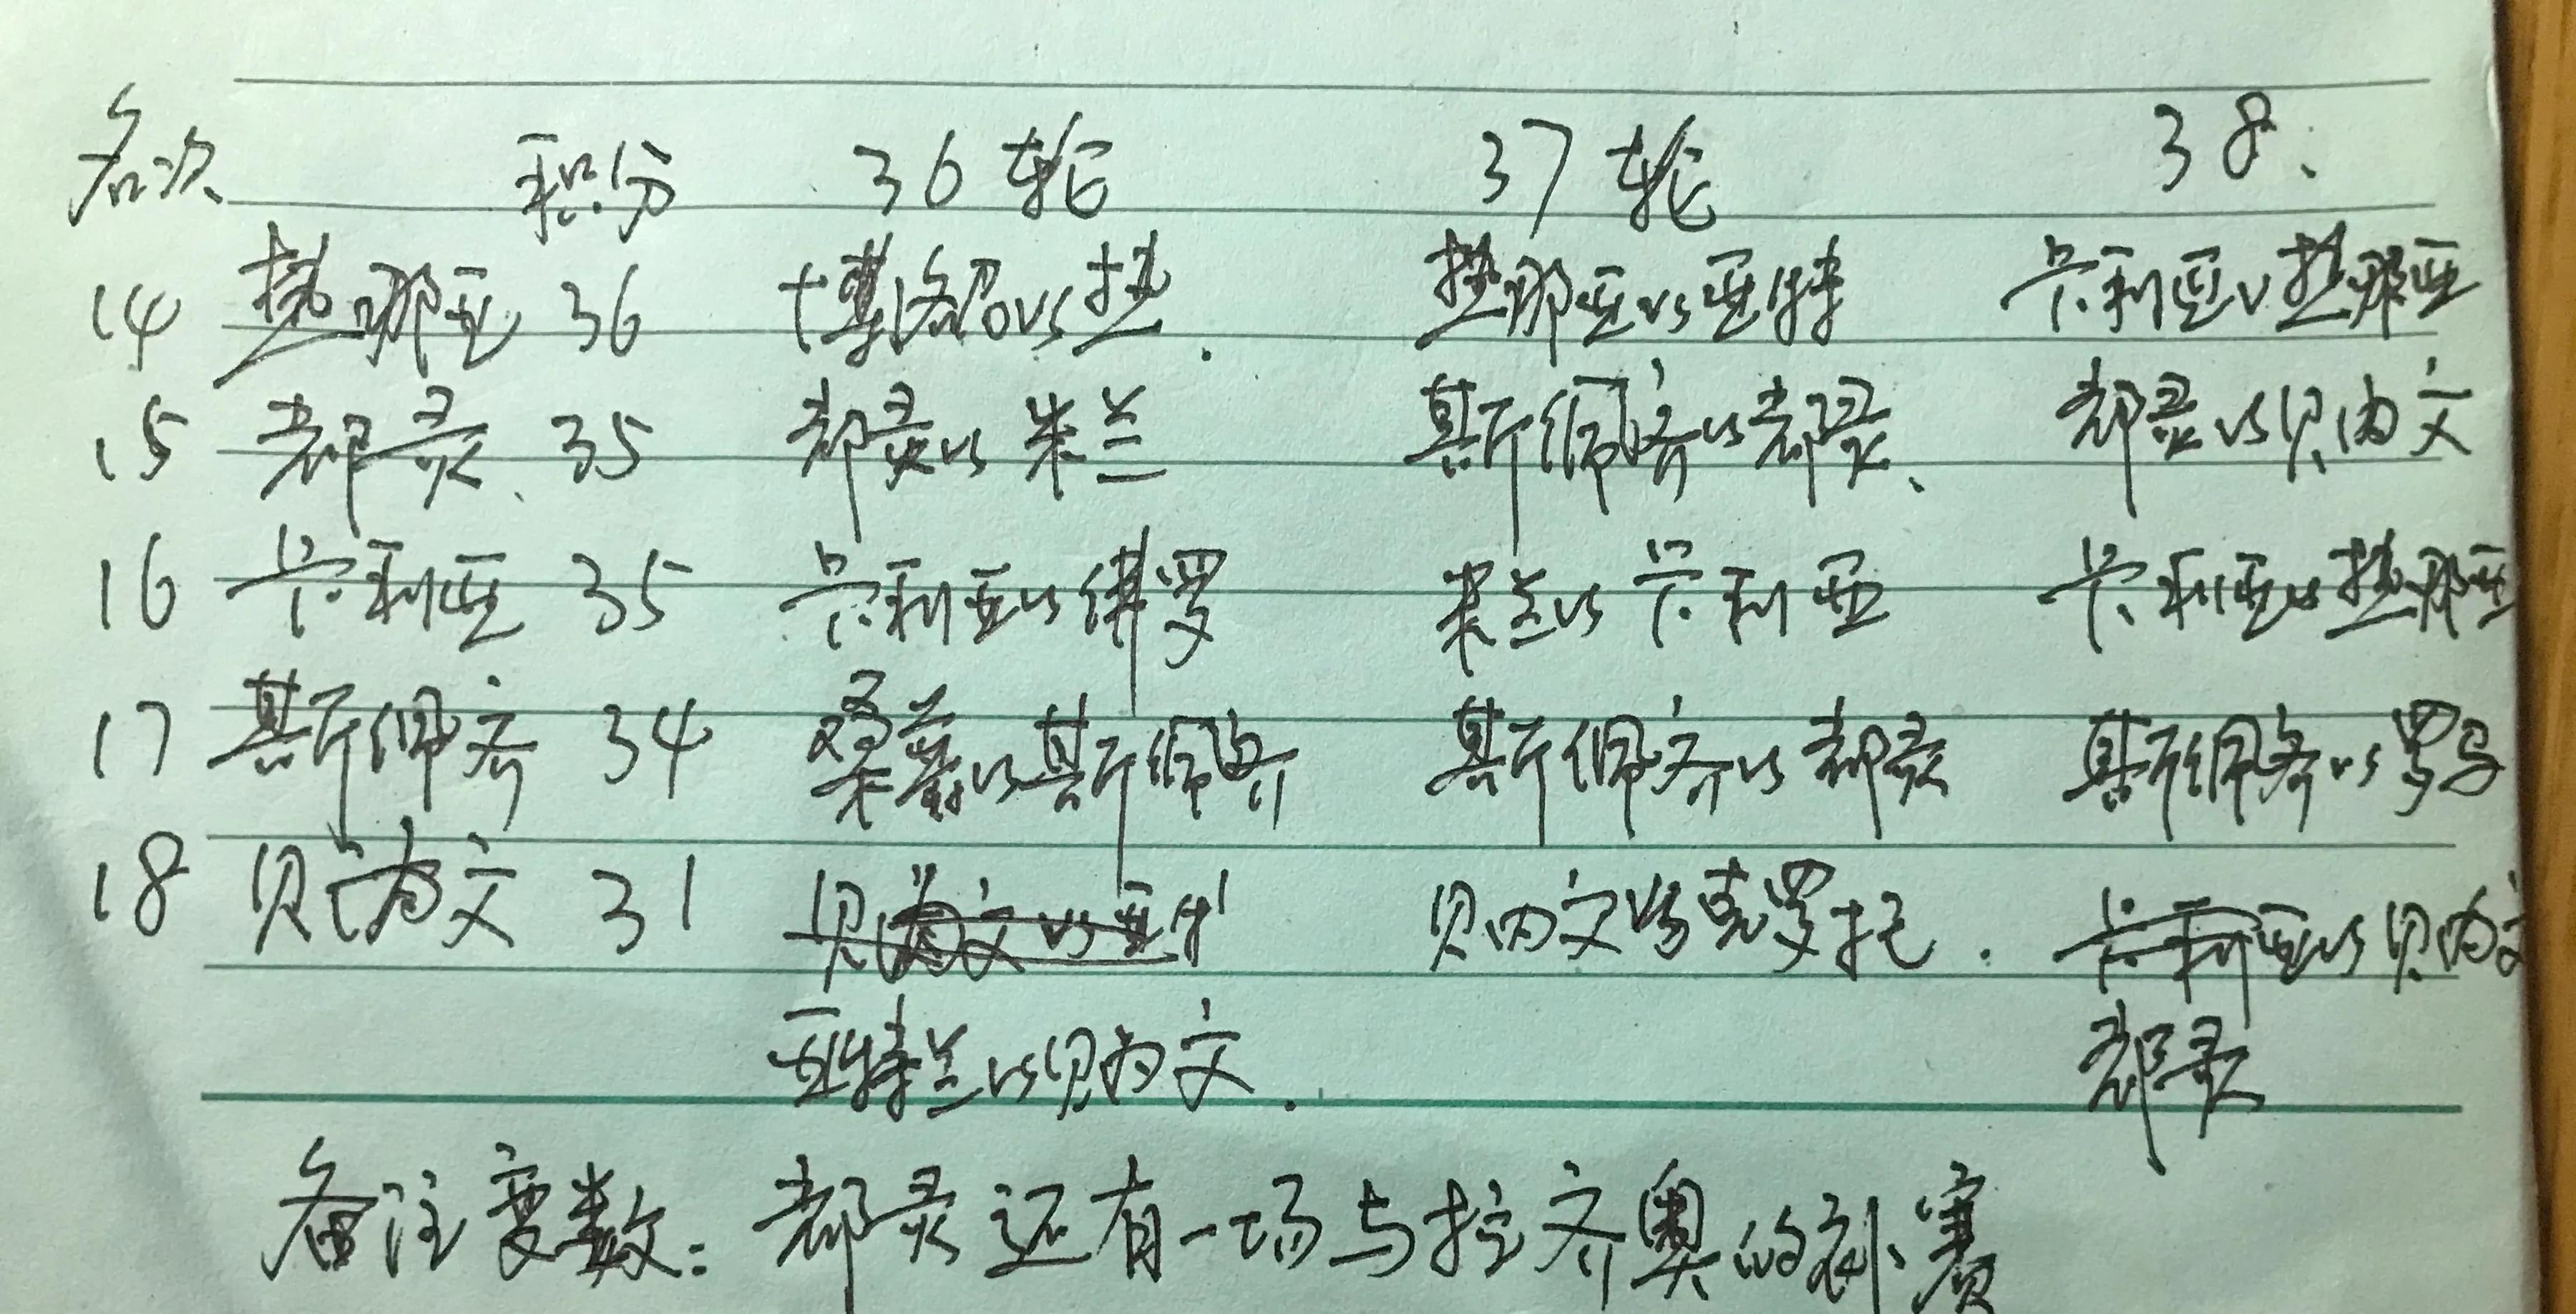 名次 积分 36轮 37轮 38、
14 热那亚 36 博洛尼vs热. 热那亚vs亚特 卡利亚v热那亚
15 都灵、35 都灵vs米兰 斯佩齐vs都灵、 都灵vs贝内文
16 卡利亚 35 卡利亚vs佛罗 米兰vs卡利亚 卡利亚vs热那亚
17 斯佩齐 34 桑普vs斯佩齐 斯佩齐vs都灵 斯佩齐vs罗马
18 贝内文 31 贝内文vs亚特 贝内文vs克罗托. 卡利亚vs贝内文
亚特兰vs贝内文. 都灵
备注变数：都灵还有一场与拉齐奥的补赛